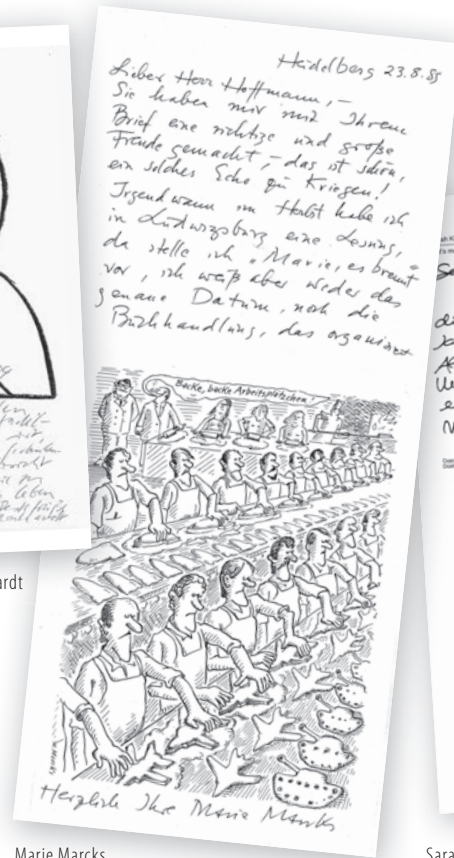 Heidelberg 23.8.85
Lieber Herr Hoffmann, –
Sie haben mir mit Ihrem
Brief eine richtige und große
Freude gemacht, – das ist schön,
ein solches Echo zu kriegen!
Irgendwann im Herbst habe ich
in Ludwigsburg eine Lesung,
da stelle ich „Marie, es brennt"
vor, ich weiß aber weder das
genaue Datum, noch die
Buchhandlung, das organisiert
Backe, backe Arbeitsplätzchen!
M. MARCKS
Herzlich Ihre Marie Marcks
ardt
Marie Marcks
Sara